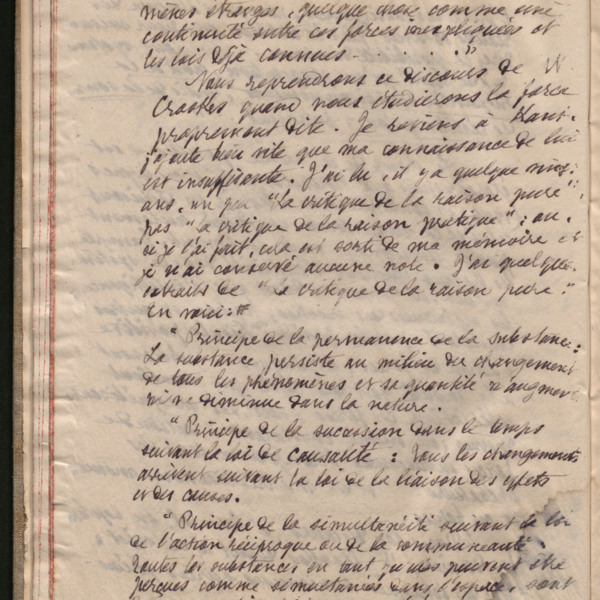 mènes étranges, quelque chose comme une
continuité entre ces forces inexpliquées et
les lois déjà connues . . . . . "
Nous reprendrons ce discours de W.
Crookes quand nous étudierons la force
proprement dite. Je reviens à Kant.
j'ajoute bien vite que ma connaissance de lui
est insuffisante. J'ai lu, il y a quelque vingt
ans, un peu "la critique de la raison pure",
pas "la critique de la raison pratique" ; ou,
si je l'ai fait, cela est sorti de ma mémoire et
je n'ai conservé aucune note. J'ai quelques
extraits de "la critique de la raison pure."
En voici :
"Principe de la permanence de la substance :
La substance persiste au milieu du changement
de tous les phénomènes et sa quantité n'augmente
ni ne diminue dans la nature.
"Principe de la succession dans le temps
suivant la loi de causalité : tous les changements
arrivent suivant la loi de la liaison des effets
et des causes.
"Principe de la simultanéité suivant la loi
de l'action réciproque ou de la communauté
toutes les substances en tant qu'elles peuvent être
perçues comme simultanées dans l'espace, sont